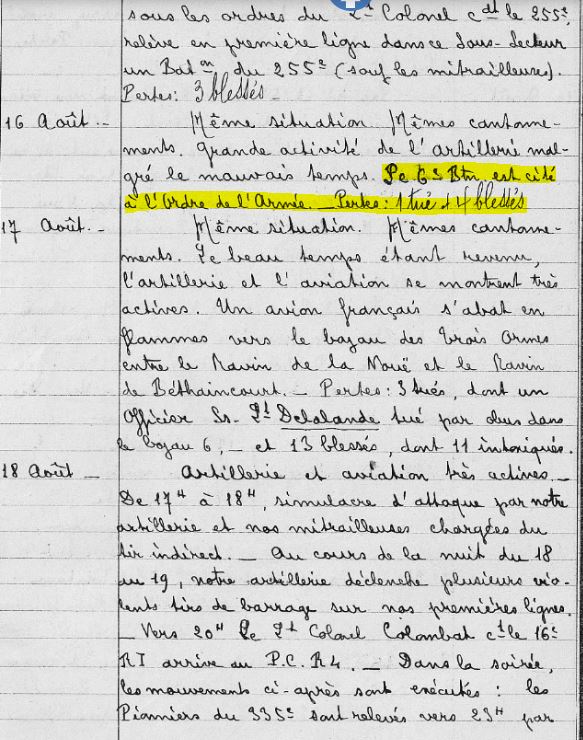 sous les ordres du Lt Colonel cdt le 255e,
relève en première ligne dans ce Sous-Secteur
un Baton du 255e (sauf les mitrailleuses).
Pertes: 3 blessés
16 Août _ Même situation. Mêmes cantonne-
ments, grande activité de l'artillerie mal-
gré le mauvais temps. Le 6e Btn est cité
à l'Ordre de l'Armée. _ Pertes: 1 tué + 4 blessés
17 Août. _ Même situation. Mêmes cantonne-
ments. Le beau temps étant revenu,
l'artillerie et l'aviation se montrent très
actives. Un avion français s'abat en
flammes vers le boyau des Trois Ormes
entre le Ravin de la Nouë et le Ravin
de Béthaincourt. _ Pertes: 3 tués, dont un
Officier Ss. Lt Delalande tué par obus dans
le boyau 6, _ et 13 blessés, dont 11 intoxiqués.
18 Août _ Artillerie et aviation très actives. _
De 17H à 18H, simulacre d'attaque par notre
artillerie et nos mitrailleuses chargées du
tir indirect. _ Au cours de la nuit du 18
au 19, notre artillerie déclenche plusieurs vio-
lents tirs de barrage sur nos premières lignes.
_ Vers 20H Le Lt Colonel Colombat ct le 16e
RI arrive au P.C. R4. _ Dans la soirée,
les mouvements ci-après sont exécutés : les
Pionniers du 335e sont relevés vers 23H par